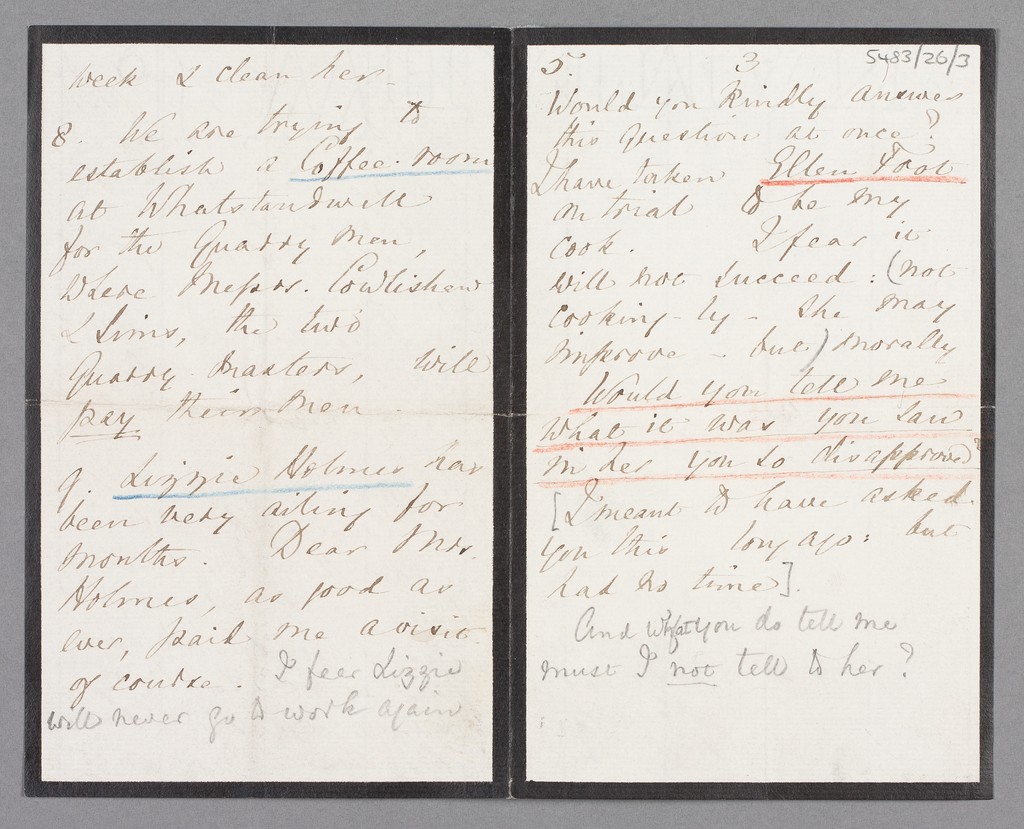 week & clean her -
8. We are trying to
establish a Coffee-room
at Whatstandwell
for the Quarry men,
where Messrs. Cowlishaw
& Sims, the two
Quarry-masters, will
pay their men.
9. Lizzie Holmes has
been very ailing for
months. Dear Mrs.
Holmes, as good as
ever, paid me a visit
of course. I fear Lizzie
will never go to work again
5483/26/3
5. 3
Would you kindly answer
this question at once?
I have taken Ellen Foot
on trial to be my
cook. I fear it
will not succeed: (not
cooking-ly - she may
improve - but) morally
Would you tell me
what it was you saw
in her you so disapproved?
[I meant to have asked
you this long ago: but
had no time].
And what you do tell me
must I not tell to her?